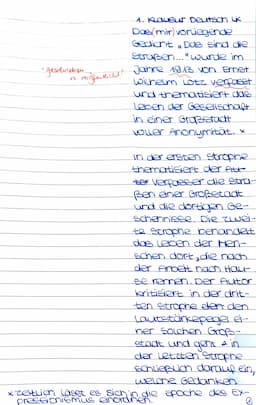 1. Klausur Deutsch LK
Das (mir) vorliegende
Gedicht „Das sind die
Straßen..." wurde im
Jahre 1913 von Ernst
Wilhelm Lotz verfasst
und thematisiert das
Leben der Gesellschaft
in einer Großstadt
voller Anonymität. *
"geschrieben"
In der ersten Strophe
thematisiert der
Verfasser die Stra-
ßen einer Großstadt
und die dortigen Ge-
schehnisse. Die zwei-
te Strophe behandelt
das Leben der Men-
schen dort, die nach
der Arbeit nach Hau-
se rennen. Der Autor
kritisiert in der drit-
ten Strophe den
Lautstärkepegel ei-
ner solchen Groß-
stadt und geht in
der letzten Strophe
schließlich darauf ein,
welche Gedanken
* zeitlich lässt es sich in die Epoche des Ex-
pressionismus einordnen.